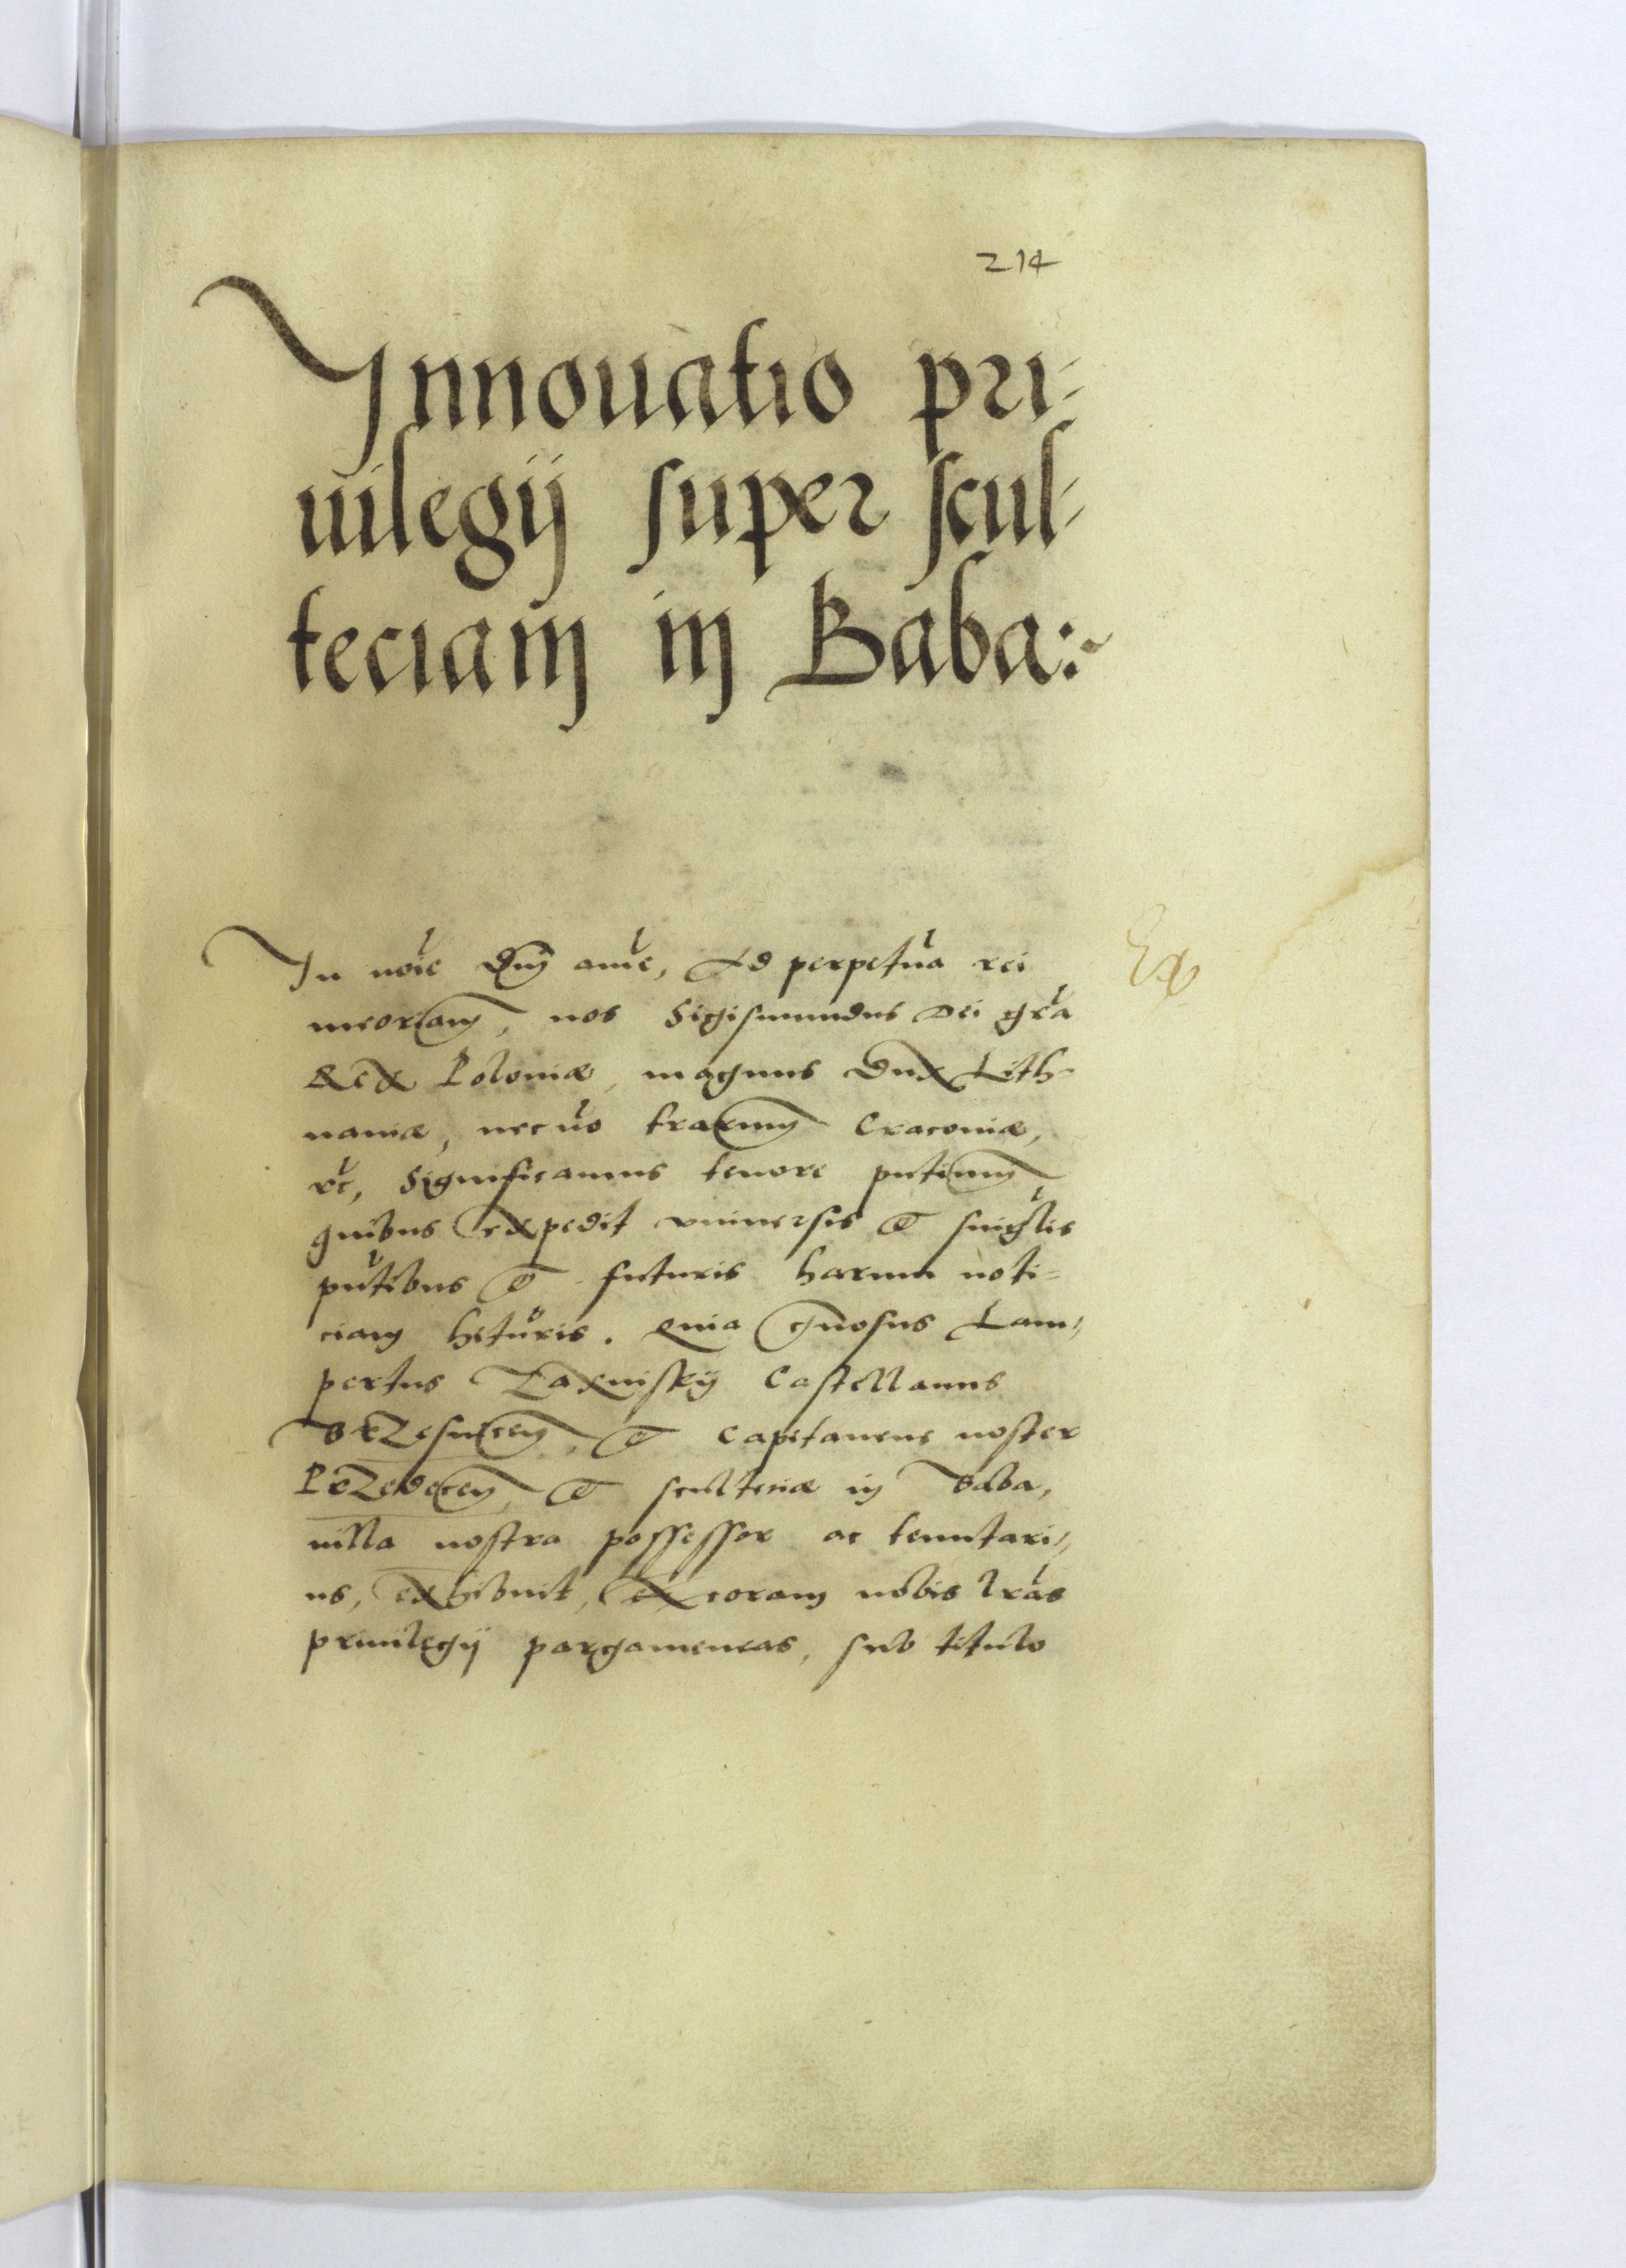 214
Innouatio pri-
uilegij super scul-
teciam in Baba:~
In noie Dni ame, Ad perpetua rei
meoriam, nos Sigismundus Dei gra
Rex Poloniæ, magnus Dux Lith-
uaniæ, nec no terrarum Cracouiæ,
rc, Significamus tenore pntium
quibus expedit vniuersis et singlis
pntibus et futuris harum noti=
ciam hituris. Quia Gnosus Lam,,
pertus Zaxinskij Castellanus
Brzesnicen, et Capitaneus noster
Przedecen, et scultetiæ in Baba,
uilla nostra possessor ac tenutari,,
us, exhibuit, ex coram nobis lras
priuilegij pargameneas, sub titulo
Ex